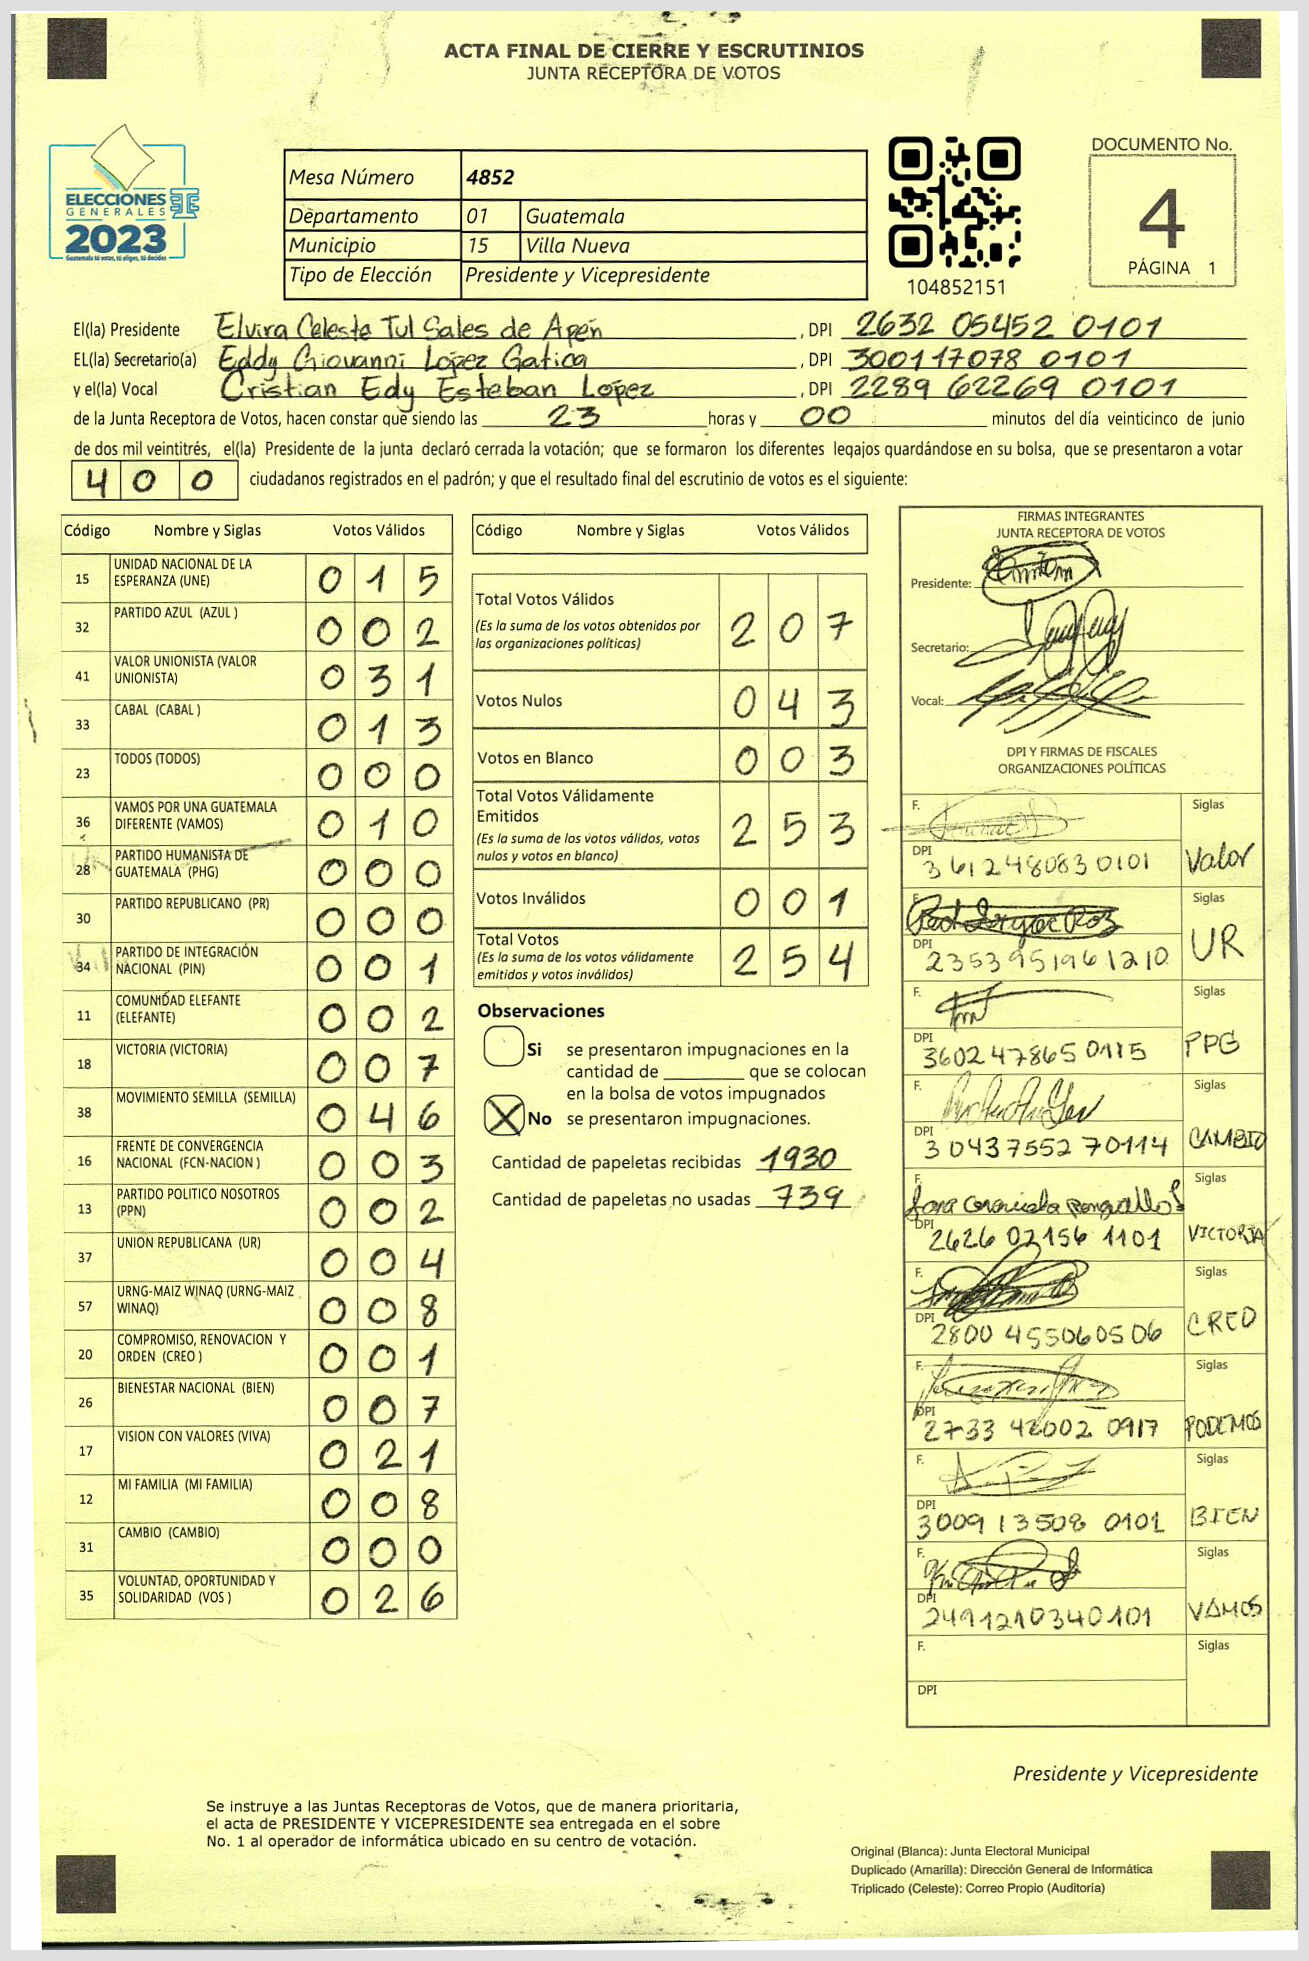 ACTA FINAL DE CIERRE Y ESCRUTINIOS
JUNTA RECEPTORA DE VOTOS
ELECCIONES
GENERALES
2023
Guatemala tú votas, tú eliges, tú decides
Mesa Número 4852
Departamento 01 Guatemala
Municipio 15 Villa Nueva
Tipo de Elección Presidente y Vicepresidente
104852151
DOCUMENTO No.
4
PÁGINA 1
El(la) Presidente Elvira Celeste Tul Sales de Apén , DPI 2632 05452 0101
EL(la) Secretario(a) Eddy Giovanni López Gatica , DPI 300117078 0101
y el(la) Vocal Cristian Edy Esteban López , DPI 2289 62269 0101
de la Junta Receptora de Votos, hacen constar que siendo las 23 horas y 00 minutos del día veinticinco de junio
de dos mil veintitrés, el(la) Presidente de la junta declaró cerrada la votación; que se formaron los diferentes legajos guardándose en su bolsa, que se presentaron a votar
400 ciudadanos registrados en el padrón; y que el resultado final del escrutinio de votos es el siguiente:
Código Nombre y Siglas Votos Válidos
15 UNIDAD NACIONAL DE LA
ESPERANZA (UNE) 015
32 PARTIDO AZUL (AZUL ) 002
41 VALOR UNIONISTA (VALOR
UNIONISTA) 031
33 CABAL (CABAL ) 013
23 TODOS (TODOS) 000
36 VAMOS POR UNA GUATEMALA
DIFERENTE (VAMOS) 010
28 PARTIDO HUMANISTA DE
GUATEMALA (PHG) 000
30 PARTIDO REPUBLICANO (PR) 000
34 PARTIDO DE INTEGRACIÓN
NACIONAL (PIN) 001
11 COMUNIDAD ELEFANTE
(ELEFANTE) 002
18 VICTORIA (VICTORIA) 007
38 MOVIMIENTO SEMILLA (SEMILLA) 046
16 FRENTE DE CONVERGENCIA
NACIONAL (FCN-NACION ) 003
13 PARTIDO POLITICO NOSOTROS
(PPN) 002
37 UNION REPUBLICANA (UR) 004
57 URNG-MAIZ WINAQ (URNG-MAIZ
WINAQ) 008
20 COMPROMISO, RENOVACION Y
ORDEN (CREO ) 001
26 BIENESTAR NACIONAL (BIEN) 007
17 VISION CON VALORES (VIVA) 021
12 MI FAMILIA (MI FAMILIA) 008
31 CAMBIO (CAMBIO) 000
35 VOLUNTAD, OPORTUNIDAD Y
SOLIDARIDAD (VOS ) 026
Código Nombre y Siglas Votos Válidos
Total Votos Válidos
(Es la suma de los votos obtenidos por
las organizaciones políticas) 207
Votos Nulos 043
Votos en Blanco 003
Total Votos Válidamente
Emitidos
(Es la suma de los votos válidos, votos
nulos y votos en blanco) 253
Votos Inválidos 001
Total Votos
(Es la suma de los votos válidamente
emitidos y votos inválidos) 254
Observaciones
Si se presentaron impugnaciones en la
cantidad de ________ que se colocan
en la bolsa de votos impugnados
X No se presentaron impugnaciones.
Cantidad de papeletas recibidas 1930
Cantidad de papeletas no usadas 739
FIRMAS INTEGRANTES
JUNTA RECEPTORA DE VOTOS
Presidente:
Secretario:
Vocal:
DPI Y FIRMAS DE FISCALES
ORGANIZACIONES POLÍTICAS
F. Siglas
DPI
3612480830101 Valor
F. Siglas
DPI
2353951961210 UR
F. Siglas
DPI
3602478650115 PPG
F. Siglas
DPI
3043755270114 CAMBIO
F. Siglas
DPI
2626 02156 1101 VICTORIA
F. Siglas
DPI
2800 455060506 CREO
F. Siglas
DPI
2733 42002 0917 PODEMOS
F. Siglas
DPI
3009 13508 0101 BIEN
F. Siglas
DPI
2491210340101 VAMOS
F. Siglas
DPI
Presidente y Vicepresidente
Se instruye a las Juntas Receptoras de Votos, que de manera prioritaria,
el acta de PRESIDENTE Y VICEPRESIDENTE sea entregada en el sobre
No. 1 al operador de informática ubicado en su centro de votación.
Original (Blanca): Junta Electoral Municipal
Duplicado (Amarilla): Dirección General de Informática
Triplicado (Celeste): Correo Propio (Auditoría)